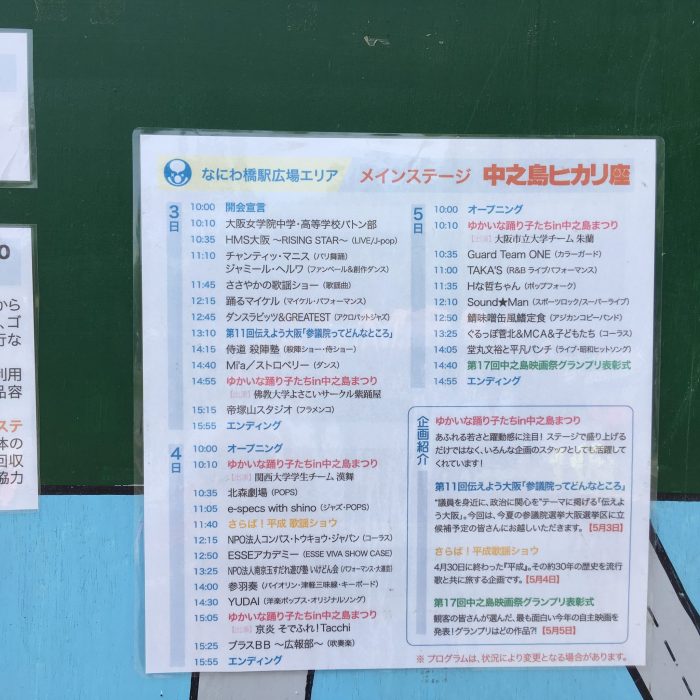 なにわ橋駅広場エリア メインステージ 中之島ヒカリ座
3日
10:00 開会宣言
10:10 大阪女学院中学・高等学校バトン部
10:35 HMS大阪 〜RISING STAR〜 (LIVE/J-pop)
11:10 チャンティッ・マニス (バリ舞踊)
ジャミール・ヘルワ (ファンベール&創作ダンス)
11:45 ささやかの歌謡ショー (歌謡曲)
12:15 踊るマイケル (マイケル・パフォーマンス)
12:45 ダンスラビッツ&GREATEST (アクロバットジャズ)
13:10 第11回伝えよう大阪「参議院ってどんなところ」
14:15 侍道 殺陣塾 (殺陣ショー・侍ショー)
14:40 Mi'a/ストロベリー (ダンス)
14:55 ゆかいな踊り子たちin中之島まつり
[出演] 佛教大学よさこいサークル紫踊屋
15:15 帝塚山スタジオ (フラメンコ)
15:55 エンディング
4日
10:00 オープニング
10:10 ゆかいな踊り子たちin中之島まつり
[出演] 関西大学学生チーム 漢舞
10:35 北森劇場 (POPS)
11:05 e-specs with shino (ジャズ・POPS)
11:40 さらば!平成 歌謡ショウ
12:15 NPO法人コンパス・トウキョウ・ジャパン (コーラス)
12:50 ESSEアカデミー (ESSE VIVA SHOW CASE)
13:25 NPO法人南京玉すだれ遊び塾 いけどん会 (パフォーマンス・大道芸)
14:00 参羽奏 (バイオリン・津軽三味線・キーボード)
14:30 YUDAI (洋楽ポップス・オリジナルソング)
15:05 ゆかいな踊り子たちin中之島まつり
[出演] 京炎 そでふれ!Tacchi
15:25 ブラスBB 〜広報部〜 (吹奏楽)
15:55 エンディング
5日
10:00 オープニング
10:10 ゆかいな踊り子たちin中之島まつり
[出演] 大阪市立大学チーム 朱蘭
10:35 Guard Team ONE (カラーガード)
11:00 TAKA'S (R&B ライブパフォーマンス)
11:35 Hな哲ちゃん (ポップフォーク)
12:10 Sound★Man (スポーツロック/スーパーライブ)
12:50 鯖味噌缶風鱧定食 (アジカンコピーバンド)
13:25 ぐるっぽ菅北&MCA&子どもたち (コーラス)
14:05 堂丸文裕と平凡パンチ (ライブ・昭和ヒットソング)
14:40 第17回中之島映画祭グランプリ表彰式
14:55 エンディング
企画紹介
ゆかいな踊り子たちin中之島まつり
あふれる若さと躍動感に注目! ステージで盛り上げる
だけではなく、いろんな企画のスタッフとしても活躍して
くれています!
第11回伝えよう大阪「参議院ってどんなところ」
"議員を身近に、政治に関心を"テーマに掲げる「伝えよ
う大阪」。今回は、今夏の参議院選挙大阪選挙区に立
候補予定の皆さんにお越しいただきます。【5月3日】
さらば!平成歌謡ショウ
4月30日に終わった『平成』。その約30年の歴史を流行
歌と共に旅する企画です。【5月4日】
第17回中之島映画祭グランプリ表彰式
観客の皆さんが選んだ、最も面白い今年の自主映画を
発表!グランプリはどの作品?!【5月5日】
※ プログラムは、状況により変更となる場合があります。
0
から
、ゴ
行な
利用
品容
ステ
体の
回収
協力